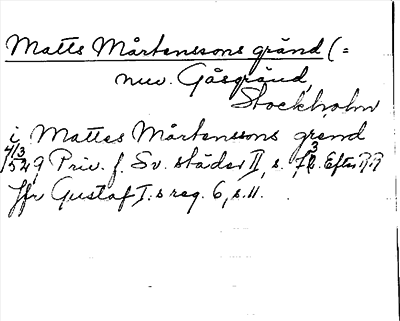 Matts Mårtenssons gränd (=
nuv. Gåsgränd,
Stockholm
i Mattes Mårtenssons grend
4/3 1529 Priv. f. Sv. städer II, s. 3. Efter RR
Jfr Gustaf I:s reg. 6, s. 11.